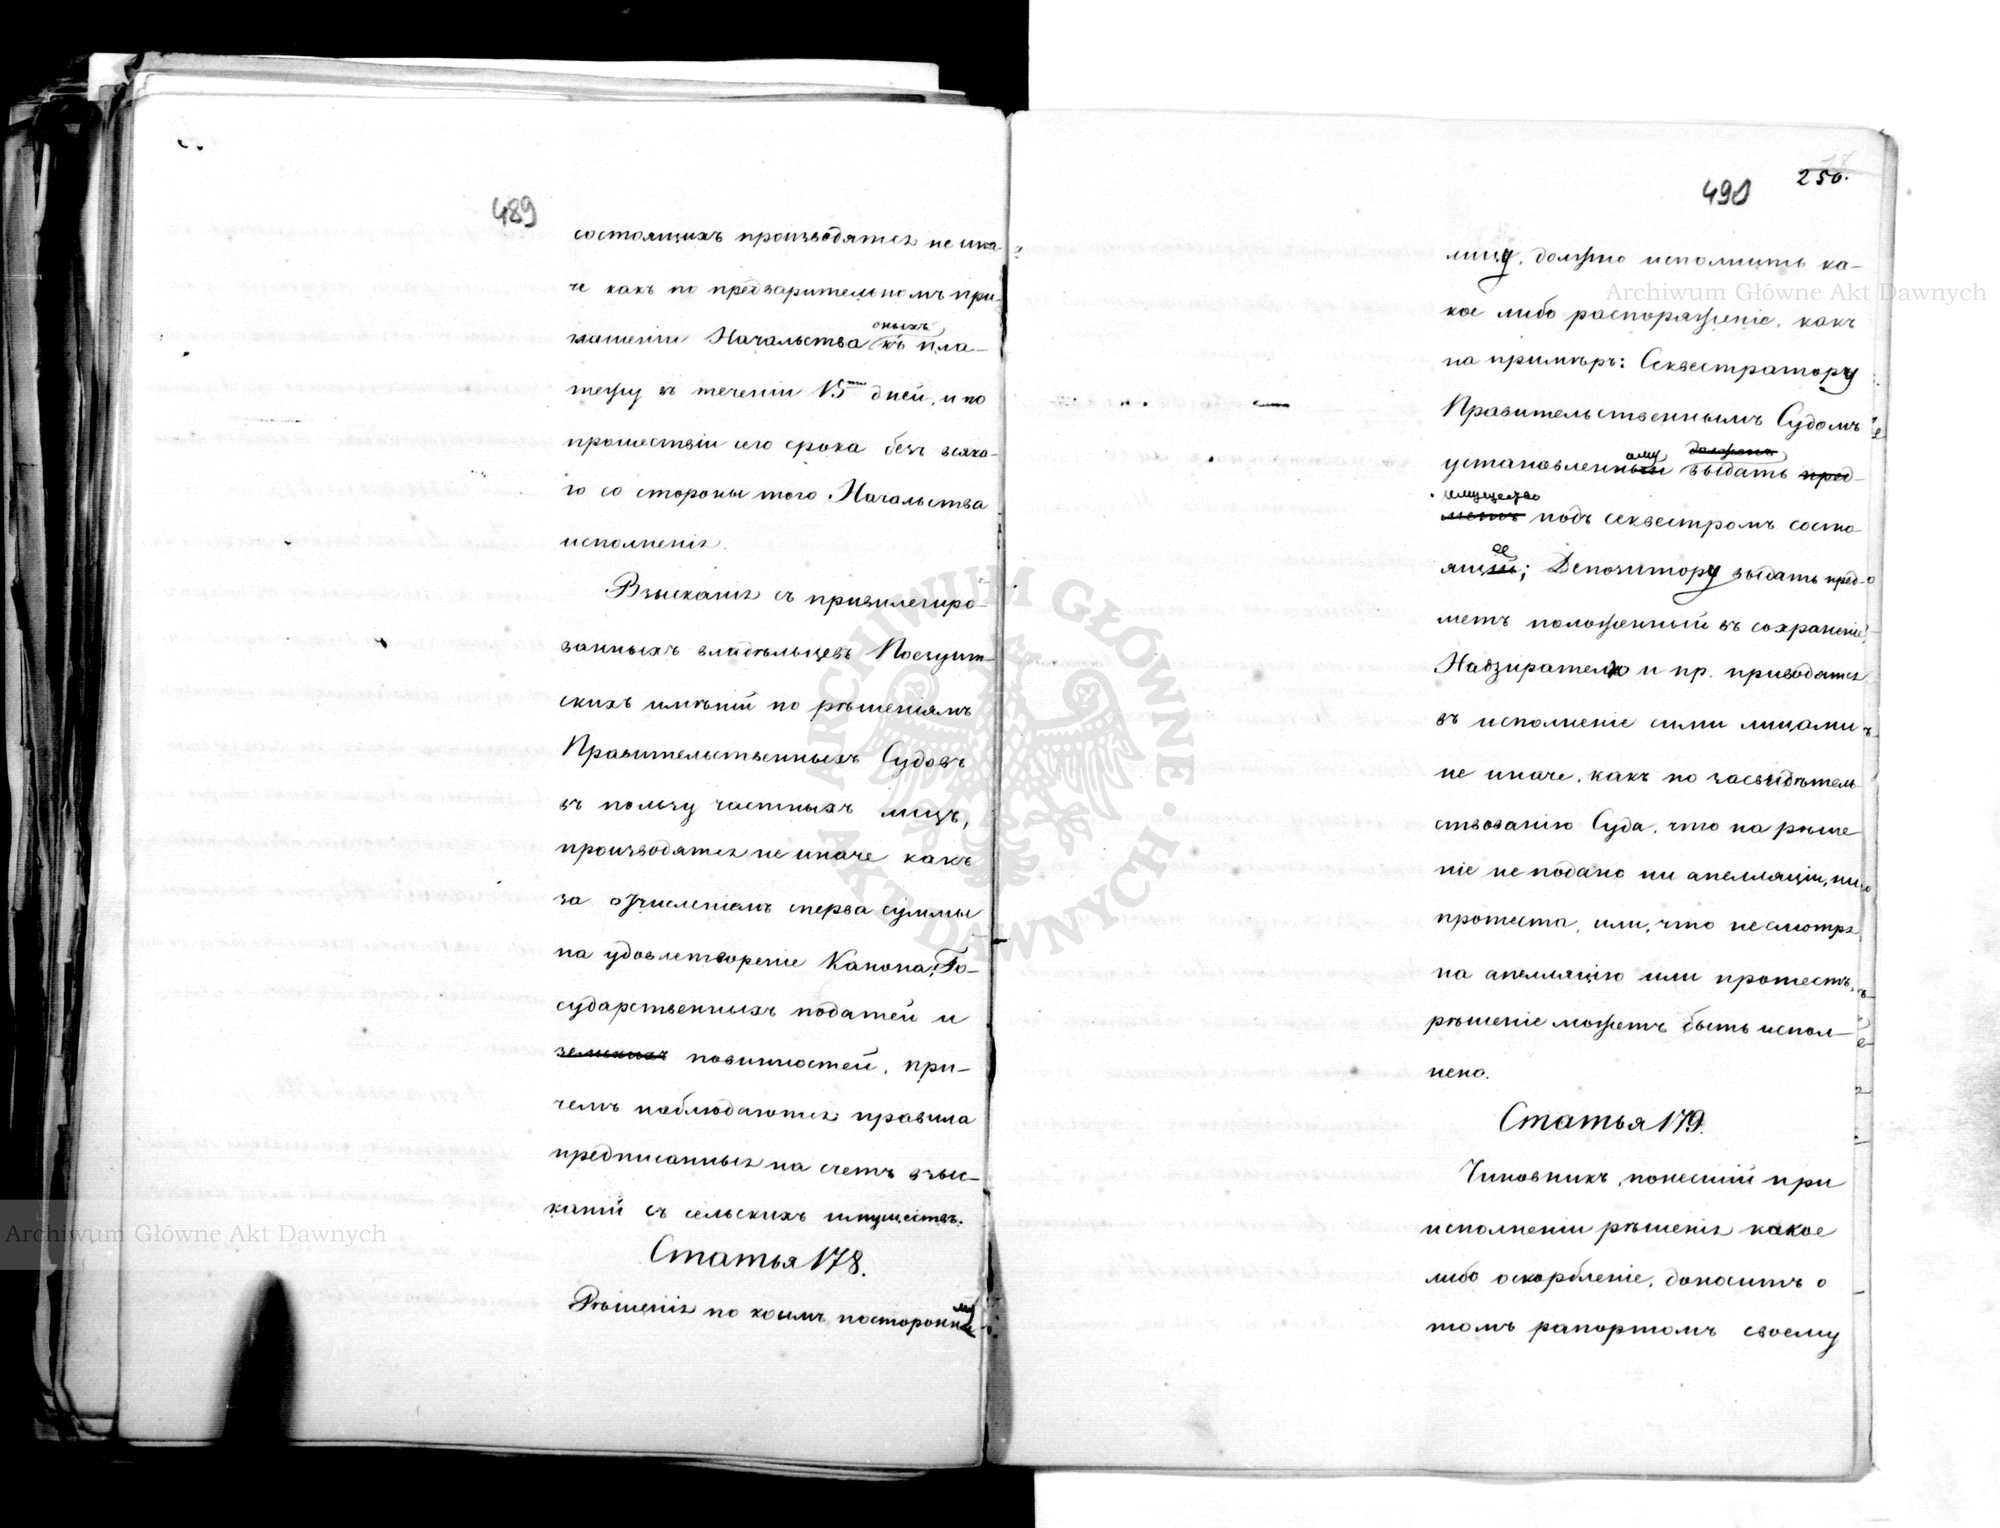 489
состоящихъ производятся не ина-
че какъ по предварительномъ при-
глашеніи Начальства оныхъ къ пла-
тежу въ теченіи 15ти дней, и по
прошествіи сего срока безъ всяка-
го со стороны того Начальства
исполненія.
Взысканія съ привилегиро-
ванныхъ владѣльцевъ Поезуит-
скихъ имѣній по рѣшеніямъ
Правительственныхъ Судовъ
въ пользу частныхъ лицъ,
производятся не иначе какъ
за отчисленіемъ сперва суммы
на удовлетвореніе Канона, Го-
сударственныхъ податей и
земскихъ повинностей, при-
чемъ наблюдаются правила
предписанныя на счетъ взыс-
каній съ сельскихъ имуществъ.
Статья 178.
Рѣшенія по коимъ посторонне
му
490
250.
лицу, должно исполнить ка-
кое либо распоряженіе, какъ
на примѣръ: Секвестратору
Правительственнымъ Судомъ
установленному должен выдать пред-
имущество
метъ подъ секвестромъ состо
ящее; Депозитору выдать пред-
метъ положенный въ сохраненіе,
Надзирателю и пр. приводятся
въ исполненіе сими лицами
не иначе, какъ по засвидѣтель
ствованію Суда, что на рѣше
ніе не подано ни апелляціи, ни
протеста, или, что не смотря
на апелляцію или протестъ,
рѣшеніе можетъ быть испол-
нено.
Статья 179.
Чиновникъ, понесшій при
исполненіи рѣшенія какое
либо оскорбленіе, доноситъ о
томъ рапортомъ своему
Archiwum Główne Akt Dawnych
Archiwum Główne Akt Dawnych
ARCHIWUM GŁÓWNE · AKT DAWNYCH ·